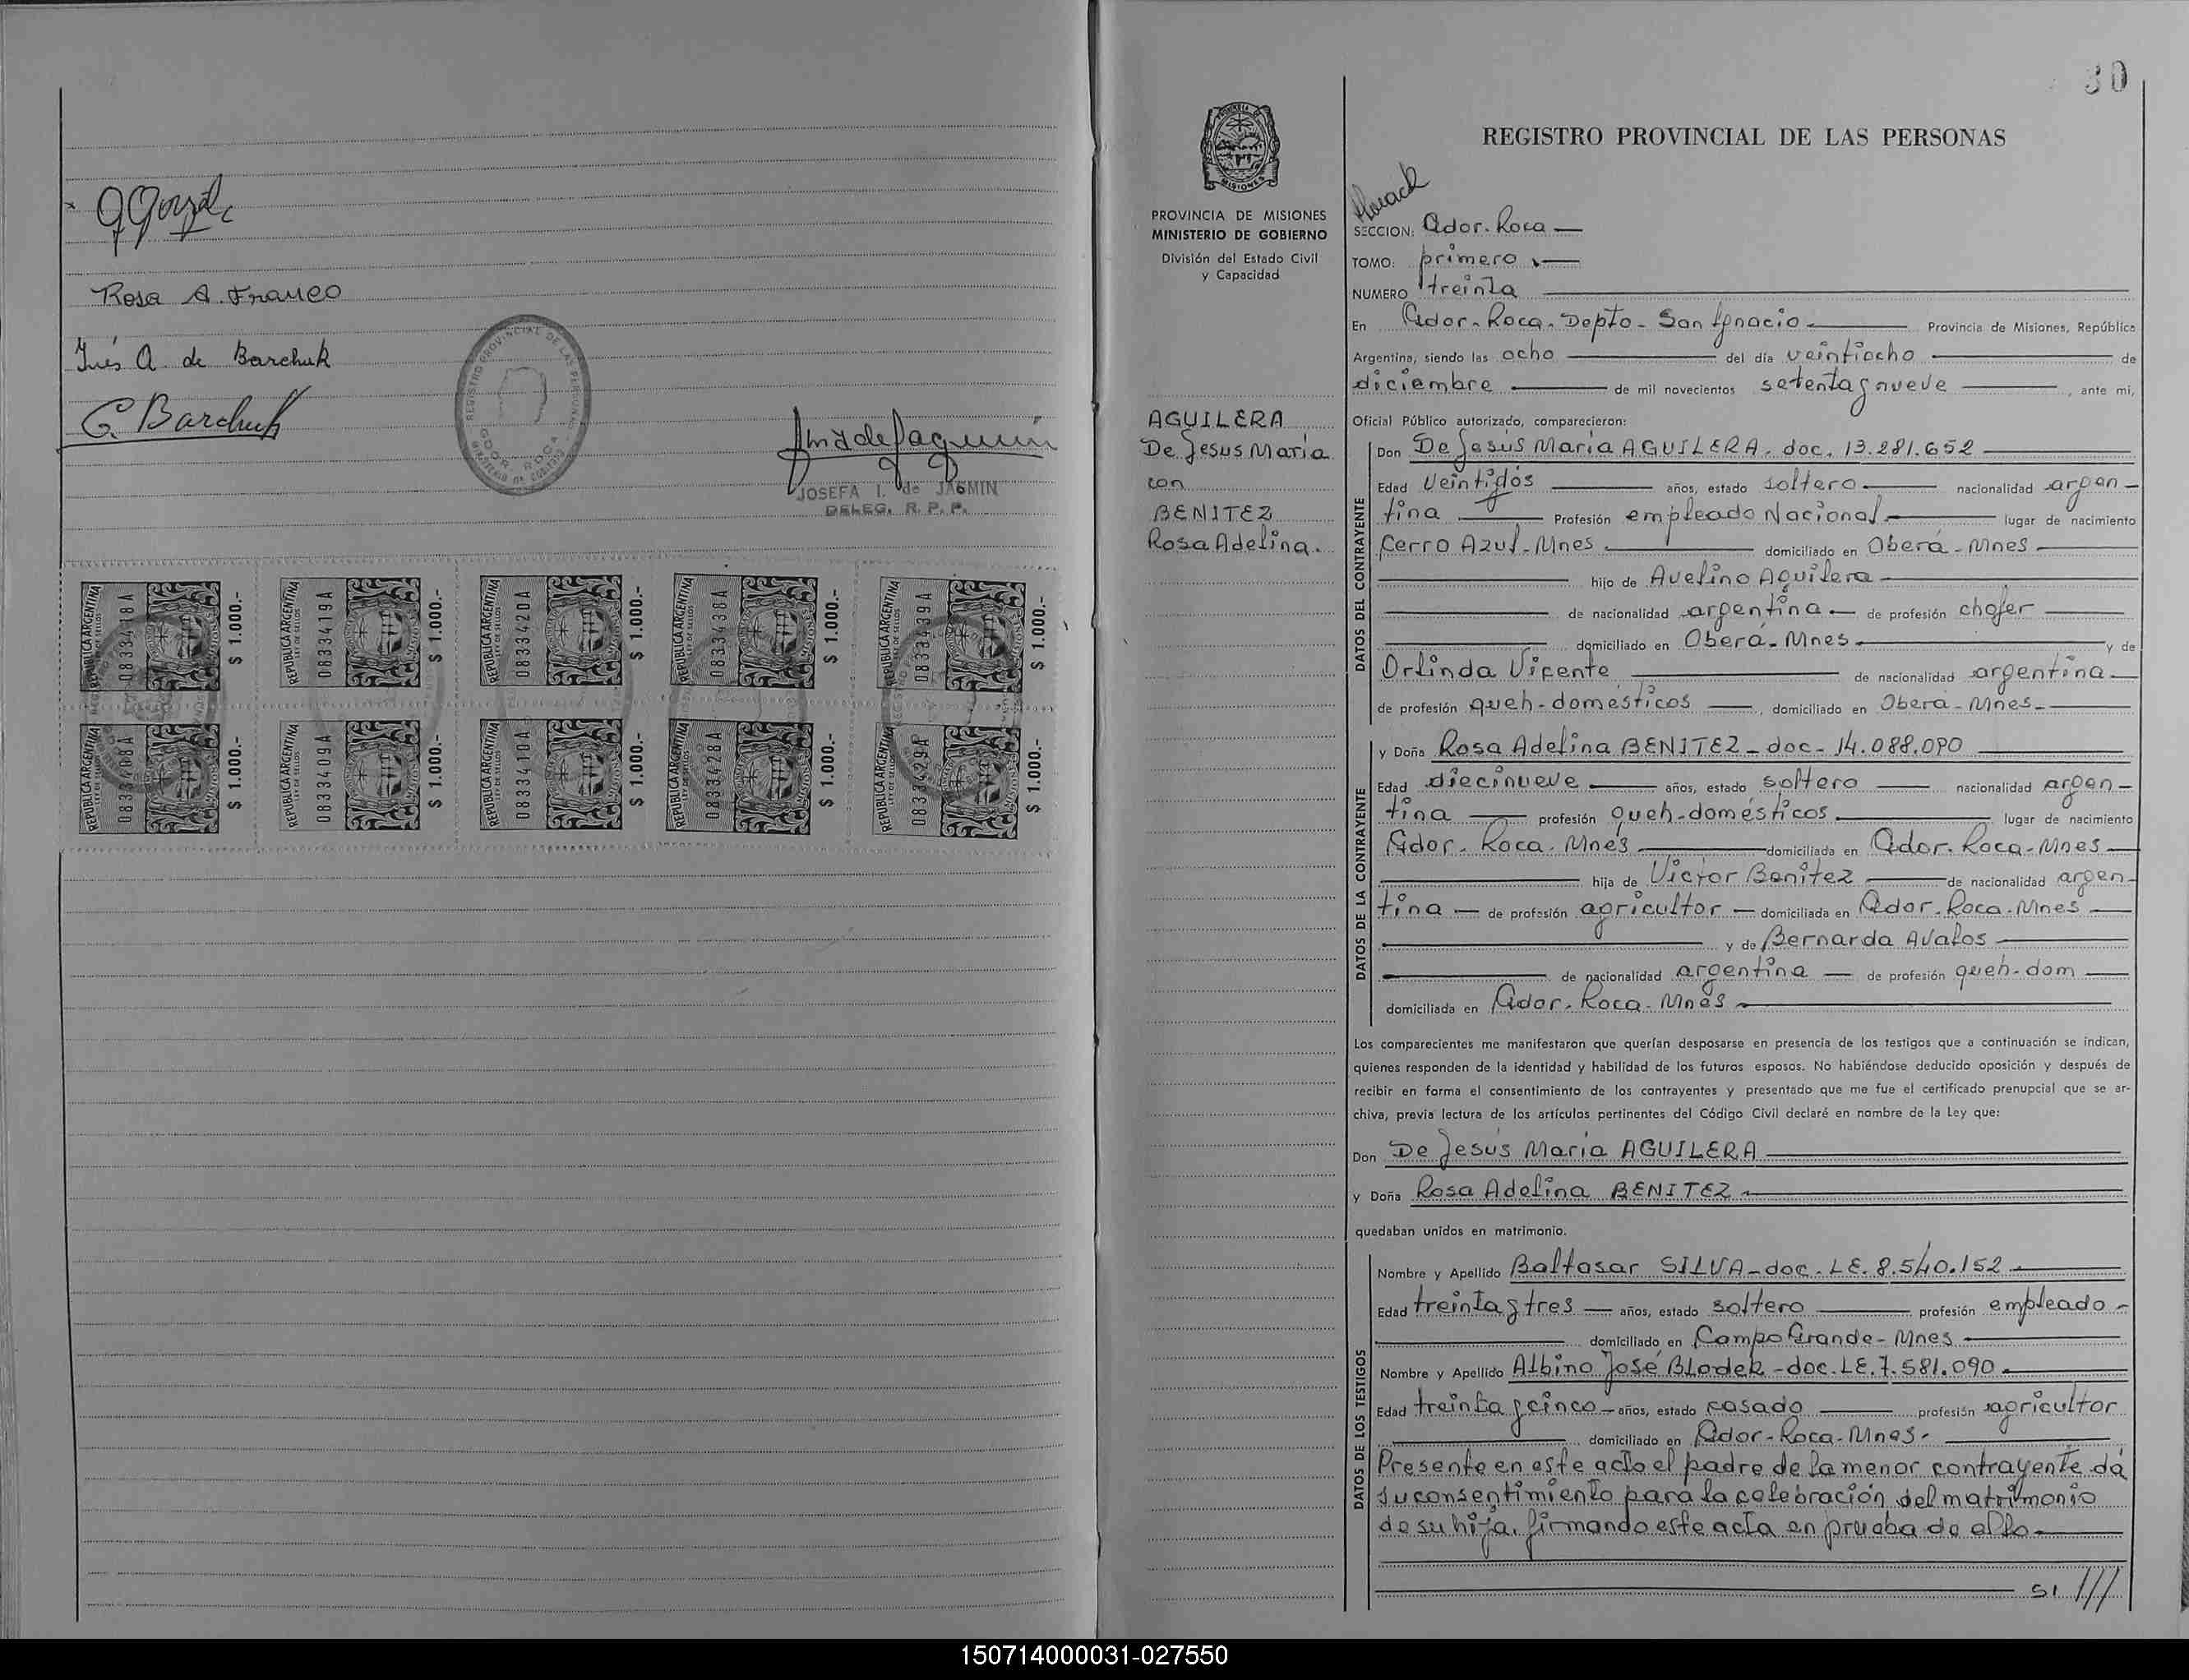 Rosa A. Franco
Inés A. de Barchuk
G. Barchuk
JOSEFA I. de JASMIN
DELEG. R. P. P.
REPUBLICA ARGENTINA
LEY DE SELLOS
0833418A
$ 1.000.-
REPUBLICA ARGENTINA
LEY DE SELLOS
0833419A
$ 1.000.-
REPUBLICA ARGENTINA
LEY DE SELLOS
0833420A
$ 1.000.-
REPUBLICA ARGENTINA
LEY DE SELLOS
0833438A
$ 1.000.-
REPUBLICA ARGENTINA
LEY DE SELLOS
0833439A
$ 1.000.-
REPUBLICA ARGENTINA
LEY DE SELLOS
0833408A
$ 1.000.-
REPUBLICA ARGENTINA
LEY DE SELLOS
0833409A
$ 1.000.-
REPUBLICA ARGENTINA
LEY DE SELLOS
0833410A
$ 1.000.-
REPUBLICA ARGENTINA
LEY DE SELLOS
0833428A
$ 1.000.-
REPUBLICA ARGENTINA
LEY DE SELLOS
0833429A
$ 1.000.-
30
PROVINCIA DE MISIONES
MINISTERIO DE GOBIERNO
División del Estado Civil
y Capacidad
AGUILERA
De Jesus Maria
con
BENITEZ
Rosa Adelina.
REGISTRO PROVINCIAL DE LAS PERSONAS
SECCION: Gdor. Roca
TOMO: primero
NUMERO treinta
En Gdor. Roca. Depto. San Ignacio Provincia de Misiones, República
Argentina, siendo las ocho del día veintiocho de
diciembre de mil novecientos setenta y nueve, ante mi,
Oficial Público autorizado, comparecieron:
DATOS DEL CONTRAYENTE
Don De Jesús María AGUILERA. doc. 13.281.652
Edad Veintidós años, estado soltero nacionalidad argen-
tina Profesión empleado Nacional lugar de nacimiento
Cerro Azul. Mnes domiciliado en Oberá-Mnes
hijo de Avelino Aguilera
de nacionalidad argentina de profesión chofer
domiciliado en Oberá-Mnes y de
Orlinda Vicente de nacionalidad argentina
de profesión queh-domésticos, domiciliado en Oberá-Mnes
DATOS DE LA CONTRAYENTE
y Doña Rosa Adelina BENITEZ-doc-14.088.090
Edad diecinueve años, estado soltero nacionalidad argen-
tina profesión queh-domésticos lugar de nacimiento
Gdor. Roca. Mnes domiciliada en Gdor. Roca-Mnes
hija de Victor Benitez de nacionalidad argen-
tina de profesión agricultor domiciliada en Gdor. Roca. Mnes
y de Bernarda Avalos
de nacionalidad argentina de profesión queh-dom
domiciliada en Gdor. Roca. Mnes
Los comparecientes me manifestaron que querían desposarse en presencia de los testigos que a continuación se indican,
quienes responden de la identidad y habilidad de los futuros esposos. No habiéndose deducido oposición y después de
recibir en forma el consentimiento de los contrayentes y presentado que me fue el certificado prenupcial que se ar-
chiva, previa lectura de los artículos pertinentes del Código Civil declaré en nombre de la Ley que:
Don De Jesús María AGUILERA
y Doña Rosa Adelina BENITEZ
quedaban unidos en matrimonio.
DATOS DE LOS TESTIGOS
Nombre y Apellido Baltasar SILVA-doc. LE. 8.540.152
Edad treinta y tres años, estado soltero profesión empleado
domiciliado en Campo Grande-Mnes
Nombre y Apellido Albino José BLodek-doc. LE. 7.581.090
Edad treinta y cinco años, estado casado profesión agricultor
domiciliado en Gdor-Roca-Mnes
Presente en este acto el padre de la menor contrayente dá
su consentimiento para la celebración del matrimonio
de su hija, firmando este acta en prueba de ello
SI ///
150714000031-027550